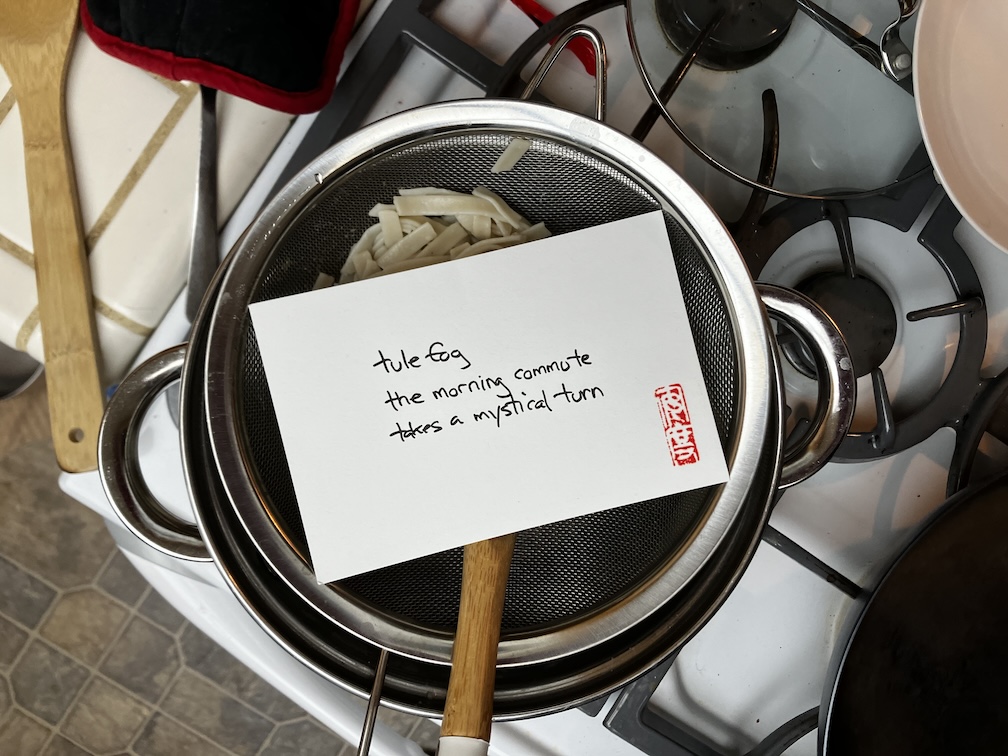 tule fog
the morning commute
takes a mystical turn